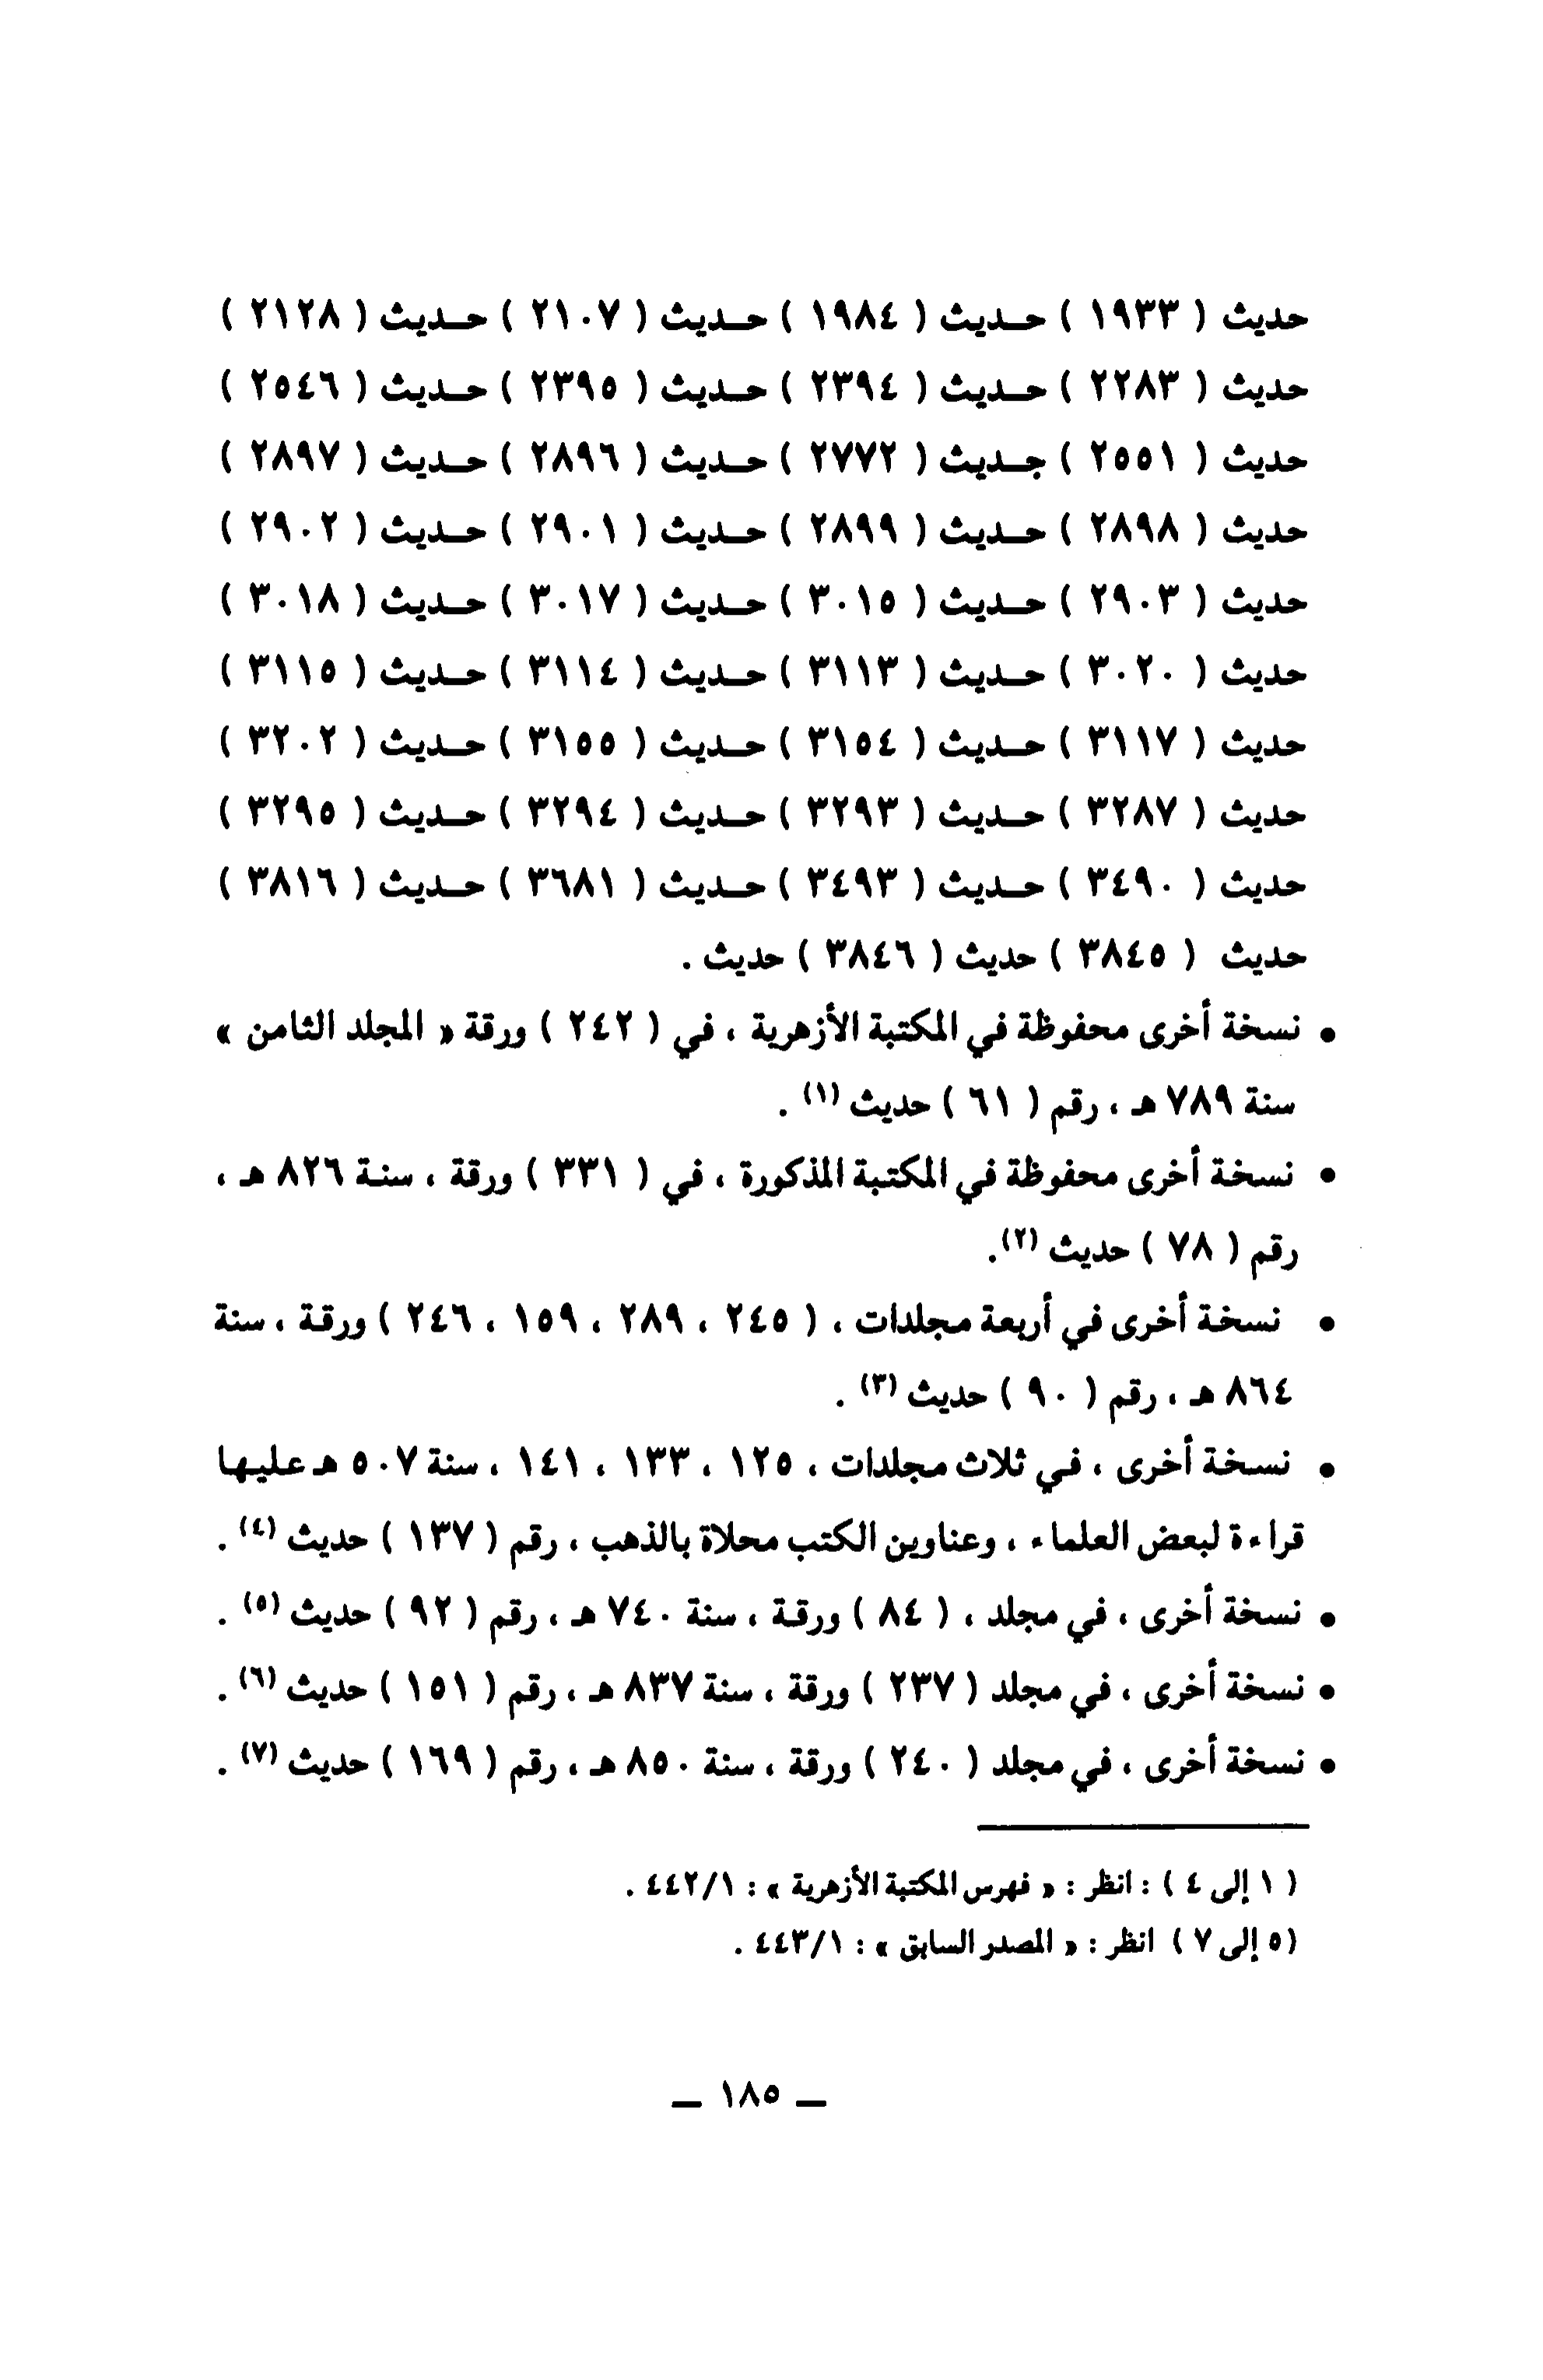 حديث ( ١٩٣٣ ) حديث ( ١٩٨٤ ) حديث ( ٢١٠٧ ) حديث ( ٢١٢٨ )
حديث ( ٢٢٨٣ ) حديث ( ٢٣٩٤ ) حديث ( ٢٣٩٥ ) حديث ( ٢٥٤٦ )
حديث ( ٢٥٥١ ) جديث ( ٢٧٧٢ ) حديث ( ٢٨٩٦ ) حديث ( ٢٨٩٧ )
حديث ( ٢٨٩٨ ) حديث ( ٢٨٩٩ ) حديث ( ٢٩٠١ ) حديث ( ٢٩٠٢ )
حديث ( ٢٩٠٣ ) حديث ( ٣٠١٥ ) حديث ( ٣٠١٧ ) حديث ( ٣٠١٨ )
حديث ( ٣٠٢٠ ) حديث ( ٣١١٣ ) حديث ( ٣١١٤ ) حديث ( ٣١١٥ )
حديث ( ٣١١٧ ) حديث ( ٣١٥٤ ) حديث ( ٣١٥٥ ) حديث ( ٣٢٠٢ )
حديث ( ٣٢٨٧ ) حديث ( ٣٢٩٣ ) حديث ( ٣٢٩٤ ) حديث ( ٣٢٩٥ )
حديث ( ٣٤٩٠ ) حديث ( ٣٤٩٣ ) حديث ( ٣٦٨١ ) حديث ( ٣٨١٦ )
حديث ( ٣٨٤٥ ) حديث ( ٣٨٤٦ ) حديث .
• نسخة أخرى محفوظة في المكتبة الأزهرية ، في ( ٢٤٢ ) ورقة « المجلد الثامن »
سنة ٧٨٩ هـ ، رقم ( ٦١ ) حديث (١) .
• نسخة أخرى محفوظة في المكتبة المذكورة ، في ( ٣٣١ ) ورقة ، سنة ٨٢٦ هـ ،
رقم ( ٧٨ ) حديث (٢).
• نسخة أخرى في أربعة مجلدات ، ( ٢٤٥ ، ٢٨٩ ، ١٥٩ ، ٢٤٦ ) ورقة ، سنة
٨٦٤ هـ ، رقم ( ٩٠ ) حديث (٣) .
• نسخة أخرى ، في ثلاث مجلدات ، ١٢٥ ، ١٣٣ ، ١٤١ ، سنة ٥٠٧ هـ عليها
قراءة لبعض العلماء ، وعناوين الكتب محلاة بالذهب ، رقم ( ١٣٧ ) حديث (٤) .
• نسخة أخرى ، في مجلد ، ( ٨٤ ) ورقة ، سنة ٧٤٠ هـ ، رقم ( ٩٢ ) حديث (٥) .
• نسخة أخرى ، في مجلد ( ٢٣٧ ) ورقة ، سنة ٨٣٧ هـ ، رقم ( ١٥١ ) حديث (٦) .
• نسخة أخرى ، في مجلد ( ٢٤٠ ) ورقة ، سنة ٨٥٠ هـ ، رقم ( ١٦٩ ) حديث (٧) .
( ١ إلى ٤ ) : انظر : « فهرس المكتبة الأزهرية » : ٤٤٢/١ .
(٥ إلى ٧ ) انظر : « المصدر السابق » : ٤٤٣/١ .
ــ ١٨٥ ــ